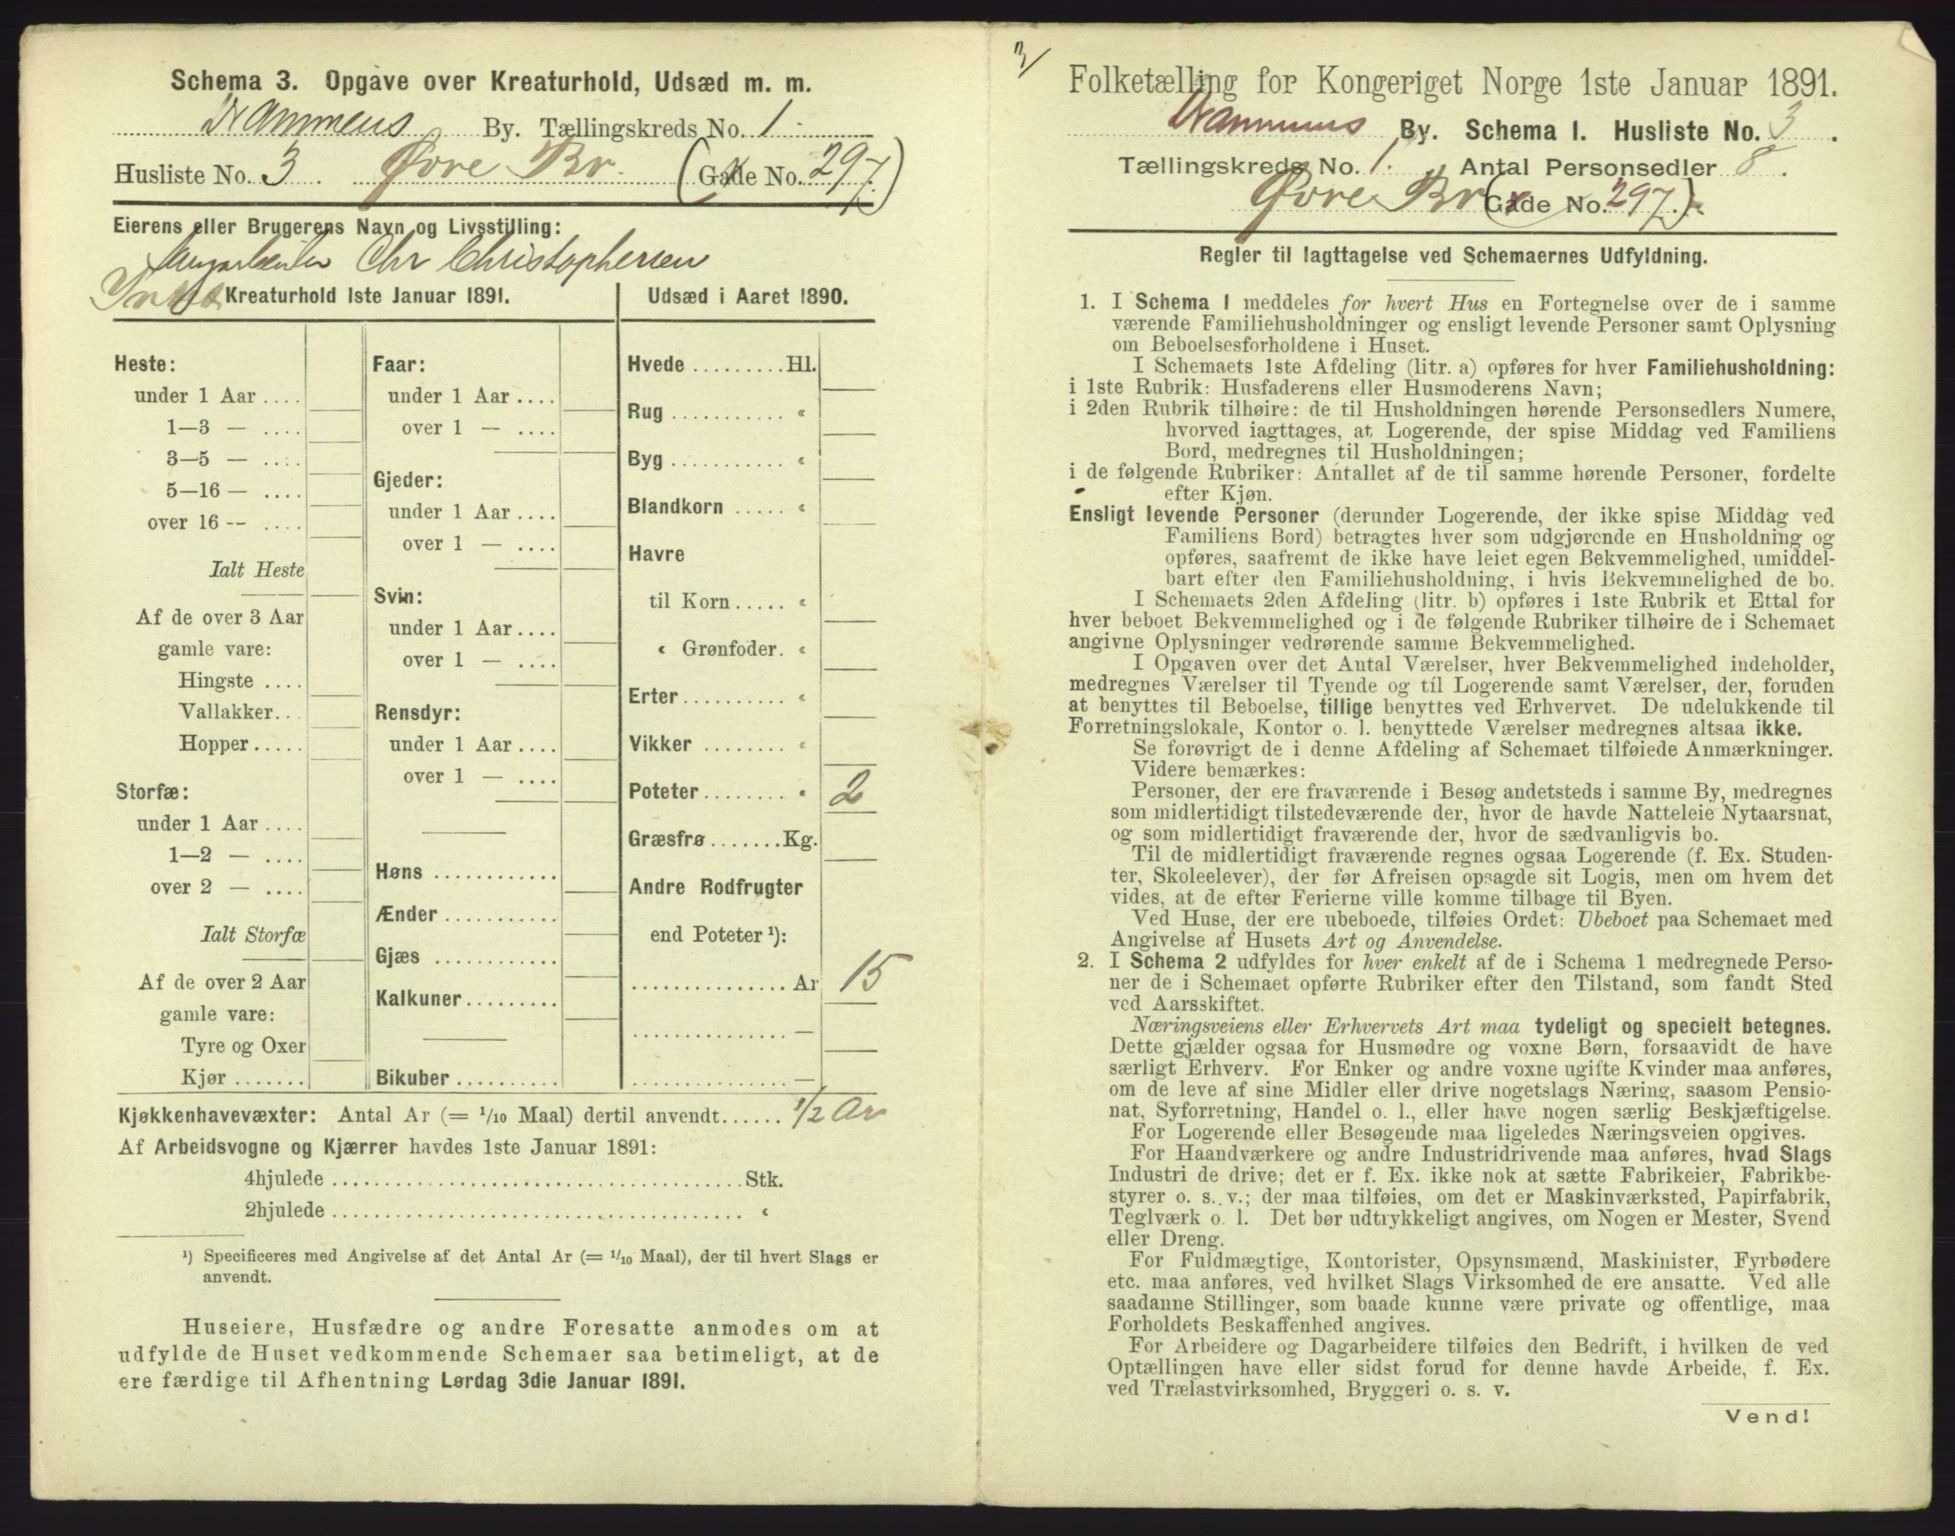 Schema 3. Opgave over Kreaturhold, Udsæd m. m.
Drammens By. Tællingskreds No. 1
Husliste No. 3 Øvre Br. (Gade No. 297)
Eierens eller Brugerens Navn og Livsstilling:
Chr Christophersen
Kreaturhold 1ste Januar 1891.
Heste:
under 1 Aar ....
1—3 — ....
3—5 — ....
5—16 — ....
over 16 -- ....
Ialt Heste
Af de over 3 Aar
gamle vare:
Hingste ....
Vallakker...
Hopper.....
Storfæ:
under 1 Aar ....
1—2 — ....
over 2 — ....
Ialt Storfæ
Af de over 2 Aar
gamle vare:
Tyre og Oxer
Kjør .......
Faar:
under 1 Aar ....
over 1 — ....
Gjeder:
under 1 Aar ....
over 1 — ....
Svin:
under 1 Aar ....
over 1 — ....
Rensdyr:
under 1 Aar ....
over 1 — ....
Høns ............
Ænder ...........
Gjæs ............
Kalkuner.........
Bikuber ..........
Udsæd i Aaret 1890.
Hvede .........Hl.
Rug ........... «
Byg ........... «
Blandkorn ..... «
Havre
til Korn ..... «
« Grønfoder. «
Erter .......... «
Vikker ........ «
Poteter ........ « 2
Græsfrø .......Kg.
Andre Rodfrugter
end Poteter ¹):
............... Ar 15
............... —
............... —
Kjøkkenhavevæxter: Antal Ar (= 1/10 Maal) dertil anvendt...... 1/2 Ar
Af Arbeidsvogne og Kjærrer havdes 1ste Januar 1891:
4hjulede .......................................Stk.
2hjulede ....................................... «
¹) Specificeres med Angivelse af det Antal Ar (= 1/10 Maal), der til hvert Slags er
anvendt.
Huseiere, Husfædre og andre Foresatte anmodes om at
udfylde de Huset vedkommende Schemaer saa betimeligt, at de
ere færdige til Afhentning Lørdag 3die Januar 1891.
3/
Folketælling for Kongeriget Norge 1ste Januar 1891.
Drammens By. Schema I. Husliste No. 3.
Tællingskreds No. 1. Antal Personsedler 8.
Øvre Br (Gade No. 297).
Regler til Iagttagelse ved Schemaernes Udfyldning.
1. I Schema I meddeles for hvert Hus en Fortegnelse over de i samme
værende Familiehusholdninger og ensligt levende Personer samt Oplysning
om Beboelsesforholdene i Huset.
I Schemaets 1ste Afdeling (litr. a) opføres for hver Familiehusholdning:
i 1ste Rubrik: Husfaderens eller Husmoderens Navn;
i 2den Rubrik tilhøire: de til Husholdningen hørende Personsedlers Numere,
hvorved iagttages, at Logerende, der spise Middag ved Familiens
Bord, medregnes til Husholdningen;
i de følgende Rubriker: Antallet af de til samme hørende Personer, fordelte
efter Kjøn.
Ensligt levende Personer (derunder Logerende, der ikke spise Middag ved
Familiens Bord) betragtes hver som udgjørende en Husholdning og
opføres, saafremt de ikke have leiet egen Bekvemmelighed, umiddel-
bart efter den Familiehusholdning, i hvis Bekvemmelighed de bo.
I Schemaets 2den Afdeling (litr. b) opføres i 1ste Rubrik et Ettal for
hver beboet Bekvemmelighed og i de følgende Rubriker tilhøire de i Schemaet
angivne Oplysninger vedrørende samme Bekvemmelighed.
I Opgaven over det Antal Værelser, hver Bekvemmelighed indeholder,
medregnes Værelser til Tyende og til Logerende samt Værelser, der, foruden
at benyttes til Beboelse, tillige benyttes ved Erhvervet. De udelukkende til
Forretningslokale, Kontor o. l. benyttede Værelser medregnes altsaa ikke.
Se forøvrigt de i denne Afdeling af Schemaet tilføiede Anmærkninger.
Videre bemærkes:
Personer, der ere fraværende i Besøg andetsteds i samme By, medregnes
som midlertidigt tilstedeværende der, hvor de havde Natteleie Nytaarsnat,
og som midlertidigt fraværende der, hvor de sædvanligvis bo.
Til de midlertidigt fraværende regnes ogsaa Logerende (f. Ex. Studen-
ter, Skoleelever), der før Afreisen opsagde sit Logis, men om hvem det
vides, at de efter Ferierne ville komme tilbage til Byen.
Ved Huse, der ere ubeboede, tilføies Ordet: Ubeboet paa Schemaet med
Angivelse af Husets Art og Anvendelse.
2. I Schema 2 udfyldes for hver enkelt af de i Schema 1 medregnede Perso-
ner de i Schemaet opførte Rubriker efter den Tilstand, som fandt Sted
ved Aarsskiftet.
Næringsveiens eller Erhvervets Art maa tydeligt og specielt betegnes.
Dette gjælder ogsaa for Husmødre og voxne Børn, forsaavidt de have
særligt Erhverv. For Enker og andre voxne ugifte Kvinder maa anføres,
om de leve af sine Midler eller drive nogetslags Næring, saasom Pensio-
nat, Syforretning, Handel o. l., eller have nogen særlig Beskjæftigelse.
For Logerende eller Besøgende maa ligeledes Næringsveien opgives.
For Haandværkere og andre Industridrivende maa anføres, hvad Slags
Industri de drive; det er f. Ex. ikke nok at sætte Fabrikeier, Fabrikbe-
styrer o. s. v.; der maa tilføies, om det er Maskinværksted, Papirfabrik,
Teglværk o. l. Det bør udtrykkeligt angives, om Nogen er Mester, Svend
eller Dreng.
For Fuldmægtige, Kontorister, Opsynsmænd, Maskinister, Fyrbødere
etc. maa anføres, ved hvilket Slags Virksomhed de ere ansatte. Ved alle
saadanne Stillinger, som baade kunne være private og offentlige, maa
Forholdets Beskaffenhed angives.
For Arbeidere og Dagarbeidere tilføies den Bedrift, i hvilken de ved
Optællingen have eller sidst forud for denne havde Arbeide, f. Ex.
ved Trælastvirksomhed, Bryggeri o. s. v.
Vend!